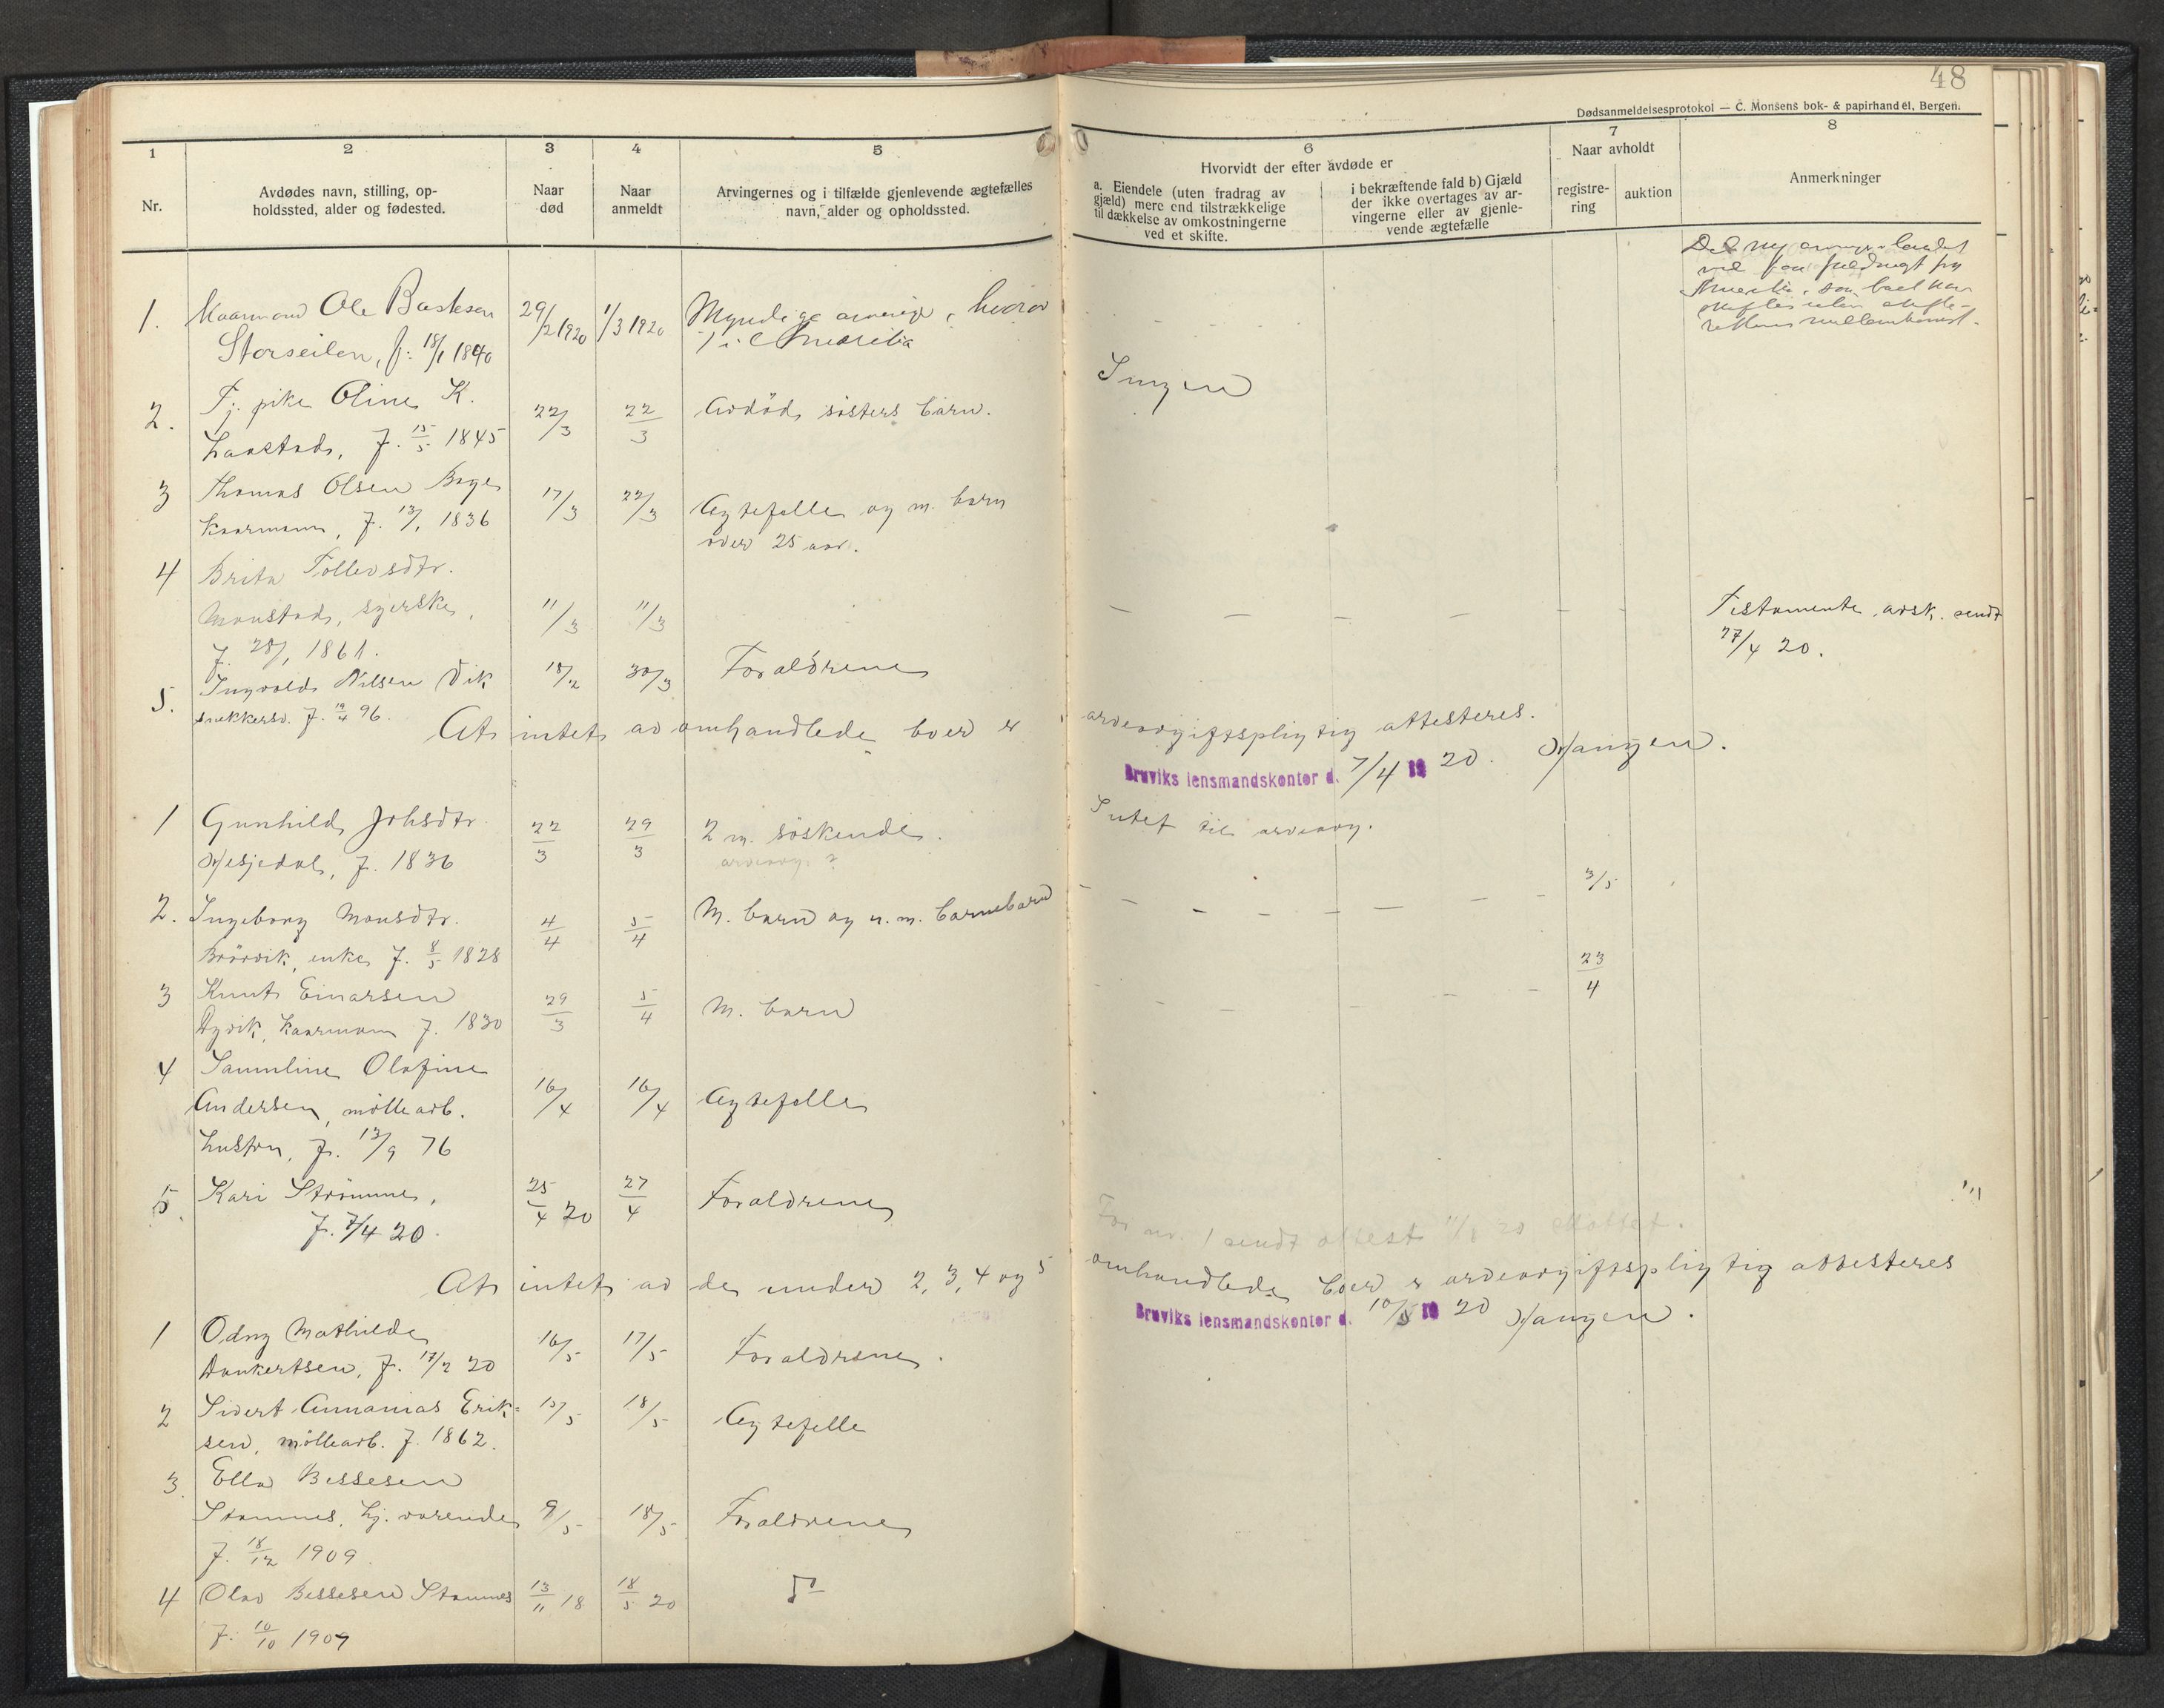 48
Dødsanmeldelsesprotokol — C. Monsens bok- & papirhandel, Bergen.
1
2
3
4
5
6
7
8
Nr.
Avdødes navn, stilling, op-
holdssted, alder og fødested.
Naar
død
Naar
anmeldt
Arvingernes og i tilfælde gjenlevende ægtefælles
navn, alder og opholdssted.
Hvorvidt der efter avdøde er
a. Eiendele (uten fradrag av
gjæld) mere end tilstrækkelige
til dækkelse av omkostningerne
ved et skifte.
i bekræftende fald b) Gjæld
der ikke overtages av ar-
vingerne eller av gjenle-
vende ægtefælle
Naar avholdt
registre-
ring
auktion
Anmerkninger
1. Kaarmand Ole
Storseilen, f. 18/1 1840
29/2 1920
1/3 1920
Myndige arvinger, hvorav
1 i
2. Fj. pike Oline K.
f. 15/5 1845
22/3
22/3
Avdød søsters barn.
Ingen
3 Thomas Olsen
kaarmann, f. 13/1 1836
17/3
22/3
Egtefelle og m. barn
over 25 aar.
4 Brita Tollevsdtr.
syerske,
f. 28/1 1861.
11/3
11/3
Testamente avsk. sendt
27/4 20.
5. Ingvald Nilsen Vik
snekkersv. f. 19/4 96.
18/2
30/3
Foraldrene
At intet av omhandlede boer er arveavgiftspligtig attesteres.
Bruviks lensmandskontor d. 7/4 19 20. Hangen.
1 Gunhild Johsdtr.
Hesjedal, f. 1836
22/3
29/3
2 m. søskende.
arveavg. ?
Intet til arveavg.
3/5
2. Ingeborg Monsdtr.
enke f. 8/5 1828
4/4
5/4
M. barn og u. m. barnebarn
23/4
3 Knut Einarsen
Dyvik, kaarmann f. 1830
29/3
5/4
M. barn
4 Samuline Olafine
Andersen, møllearb.
hustru, f. 13/9 76
16/4
16/4
Egtefelle
5. Kari Strømme,
f. 7/4 20.
25/4 20
27/4
Foraldrene
For nr. 1 sendt attest
At intet av de under 2, 3, 4 og 5 omhandlede boer er arveavgiftspligtig attesteres
Bruviks lensmandskontor d. 10/5 19 20 Hangen.
1 Odny Mathilde
Dankertsen, f. 17/2 20
16/5
17/5
Foraldrene.
2 Sivert Annanias Erik-
sen, møllearb. f. 1862.
18/5
Egtefelle
3. Ella Bessesen
Stamnes, hj. værende
f. 18/12 1909.
9/5
18/5
Foraldrene
4 Olav Bessesen Stamnes
f. 10/10 1909
13/11 18
18/5 20
do